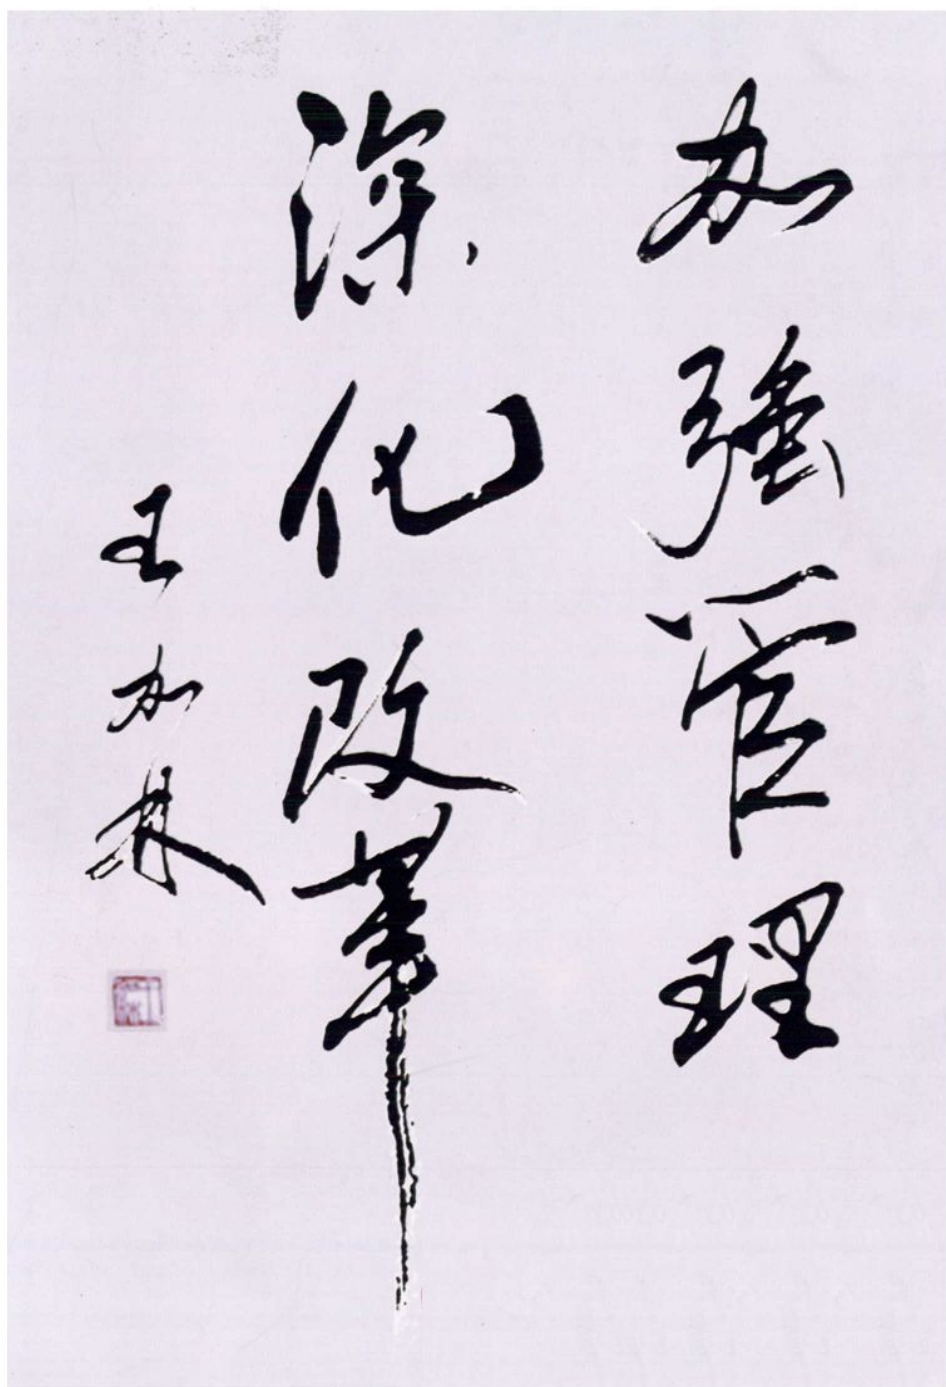 加强管理
深化改革
王加林